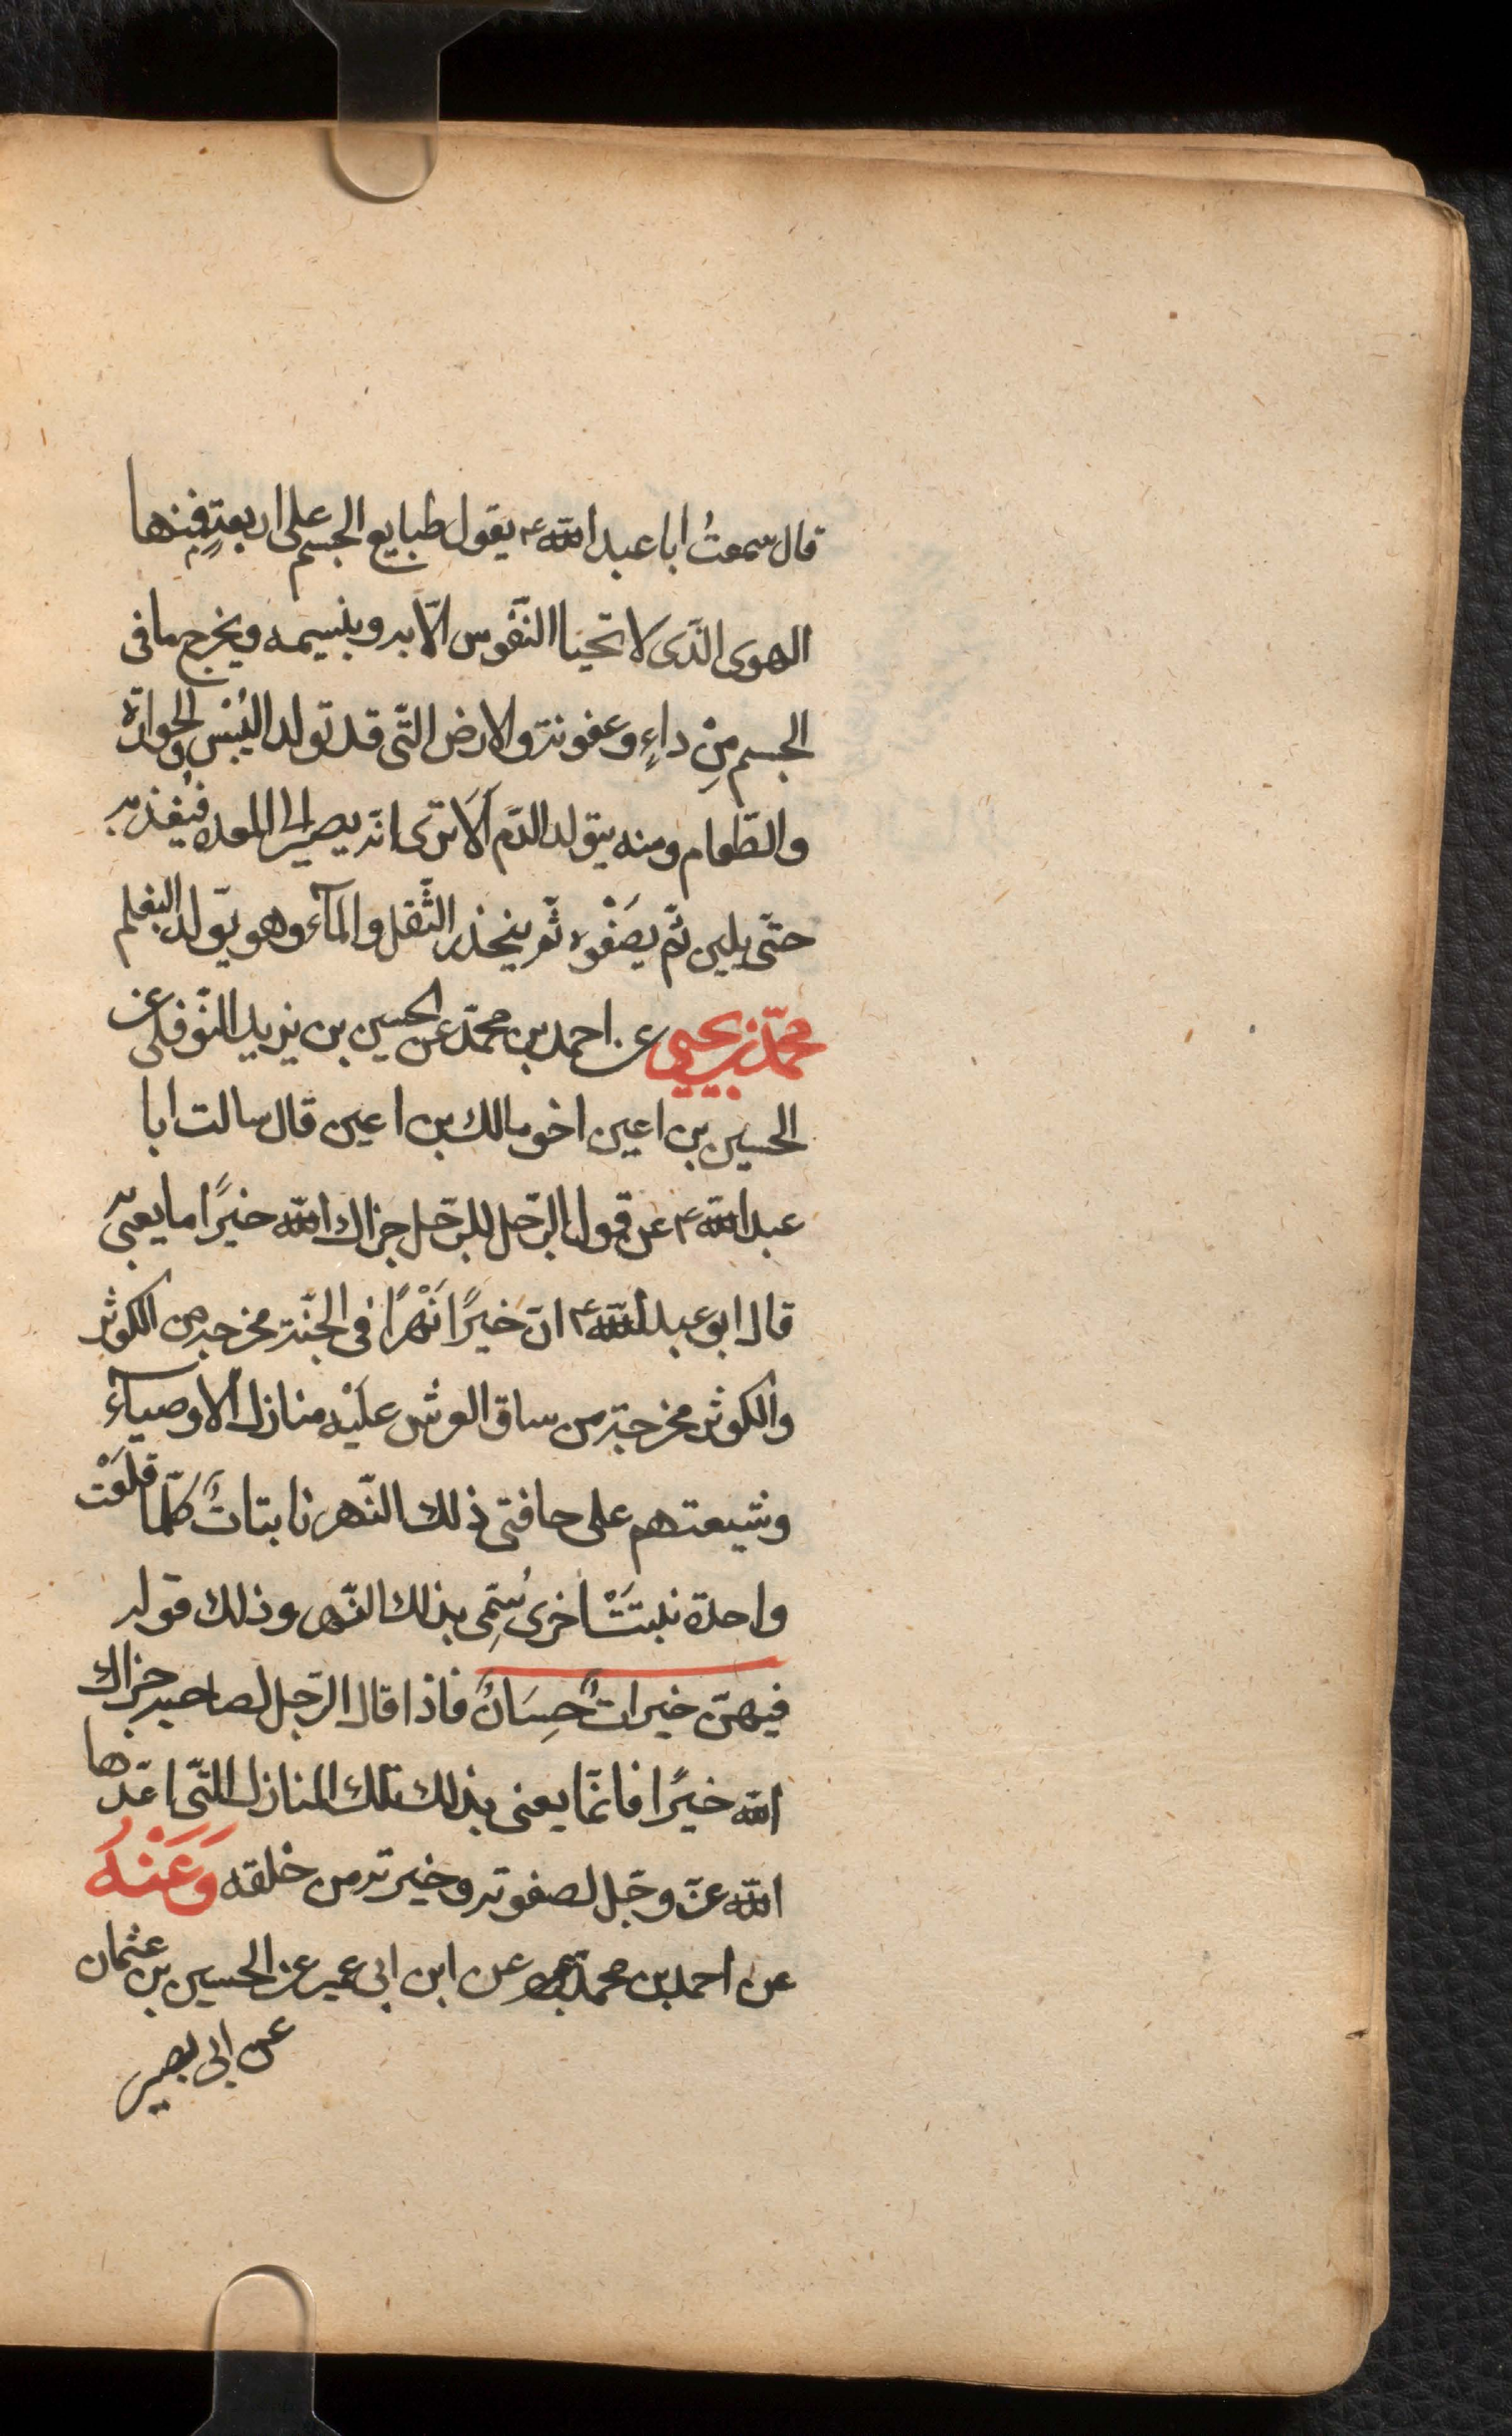 قال سمعتُ ابا عبد الله ع يقول طبايع الجسم على اربعةٍ فمنها
الهوى الذّى لا تحيا النّفوس الّا به وبنسيمه ويخرج ما فى
الجسم مِنْ داءٍ وعفونة والارض التّى قد تولد اليُبْس والحرارة
والطّعام ومنه يتولد الدّم اَلَا ترى انّه يصير الى المعده فيغذيه
حتّى يلين ثمّ يصَفْوه ثم ينحذر الثّفل والمآء وهو يتولد البغلم
محمّد بن يحيى عن احمد بن محمّد عن الحسين بن يزيد النّوفلى عن
الحسين بن اعين اخو مالك بن اعين قال سالت ابا
عبد الله ع عن قول الرّجل للرّجل جزاك الله خيرًا ما يعنى به
قال ابو عبد الله ع انّ خيرًا نَهْرًا فى الجنّة مخرجه من الكوثر
والكوثر مخرجة من ساق العرش عليْه منازل الاوصيآء
وشيعتهم على حافتى ذلك النّهر نابتاتٌ كلّما قلعَتْ
واحدة نبتَتْ اخرى سُمِّى بذلك النّهر وذلك قوله
فيهنّ خيراتٌ حِسَانٌ فاذا قال الرّجل لصاحبه جزاك
الله خيرًا فانمّا يعنى بذلك تلك المنازل التّى اعّدها
الله عزّ وجّل لصفوته وخيرته من خلقه وَعَنْهُ
عن احمد بن محمّد عن ابن ابى عمير عن الحسين بن عثمان
عن ابى بصير